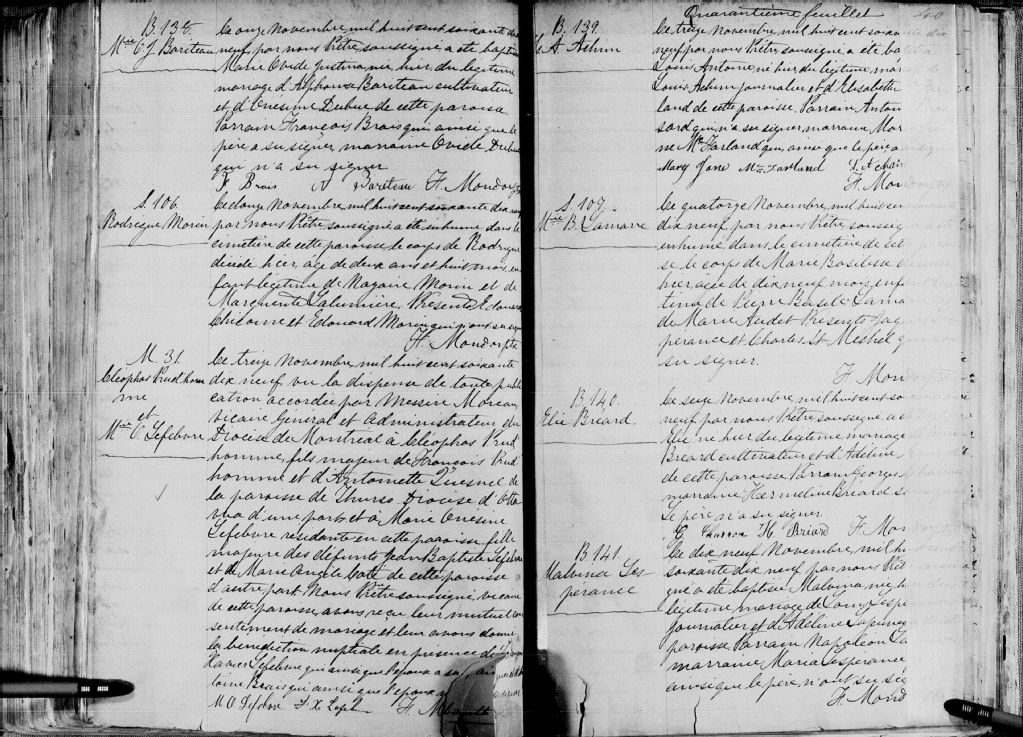 B. 138
Mie O. J. Bariteau
Le onze Novembre, mil huit cent soixante dix
neuf, par nous Prêtre soussigné a été baptisé
Marie Ovide Justina née hier, du légitime
mariage d'Alphonse Bariteau cultivateur
et d'Onésime Dubuc de cette paroisse
Parrain François Brais qui ainsi que le
père a su signer, marraine Ovide Dubuc
qui n'a su signer
F Brais A Bariteau F. Mondor ptre
S. 106.
Rodrigue Morin
Le douze Novembre, mil huit cent soixante dix neuf
par nous Prêtre soussigné a été inhumé dans le
cimetière de cette paroisse, le corps de Rodrigue
décédé hier, agé de deux ans et huit mois, en
fant légitime de Nazaire Morin et de
Marguerite Lalumière. Présents Edouard
et Edouard Morin qui n'ont su signer
F. Mondor ptre
M. 31.
Cléophas Prudhom
me
et
Mie O. Lefebvre
Le treize Novembre, mil huit cent soixante
dix neuf vu la dispense de toute publi
cation accordée par Messire Moreau
vicaire Général et Administrateur du
Diocèse de Montréal à Cléophas Prud
homme, fils majeur de François Prud
homme et d'Antoinette Quesnel de
la paroisse de Thurso Diocèse d'Otta
wa d'une part, et à Marie Onésine
Lefebvre résidante en cette paroisse fille
majeure des défunts Jean Baptiste Lefebvre
et de Marie Angèle Coté de cette paroisse
d'autre part. Nous Prêtre soussigné, vicaire
de cette paroisse, avons reçu leur mutuel con
sentement de mariage et leur avons donné
la bénédiction nuptiale en présence de
Xavier Lefebvre qui ainsi que l'épouse a su
toine Brais qui ainsi que l'époux
M O Lefebvre F. X Lefeb F. M
Quarantième feuillet 40
B. 139.
L. A. Achim
Le treize Novembre, mil huit cent soixante dix
neuf par nous Prêtre soussigné a été ba
Louis Antoine né hier du légitime mar
Louis Achim journalier et d'Elisabeth
land de cette paroisse. Parrain Anton
sard qui n'a su signer, marraine Mar
ne McFarland qui, ainsi que le père a
Mary Jane McFarland L. Achim
F. Mon
S. 107.
Mie B. Lamarre
Le quatorze Novembre, mil huit cen
dix neuf par nous Prêtre, soussig
inhumé dans le cimetière de cet
se le corps de Marie Basilisse
hier agée de dix neuf mois, enf
time de Pierre Basile Lama
de Marie Audet Présents Jaq
perance et Charles St Michel q
su signer.
F. Mon
B. 140.
Elie Briard.
Le seize Novembre, mil huit cent so
neuf, par nous Prêtre soussigné a é
Elie né hier du légitime mariage
Breard cultivateur et d'Adeline
de cette paroisse. Parrain Georges
marraine Hermeline Breard s
Le père n'a su signer.
G. Charron H. Briard F. Mor
B. 141.
Malvina Les
perance
Le dix neuf Novembre, mil hu
soixante dix neuf, par nous Prêt
gné a été baptisée Malvina née h
légitime mariage de Louis Lespe
journalier et d'Adéline Lapierre
paroisse Parrain Napoléon La
marraine Maria Lesperance
ainsi que le père, n'ont su sig
F. Mond